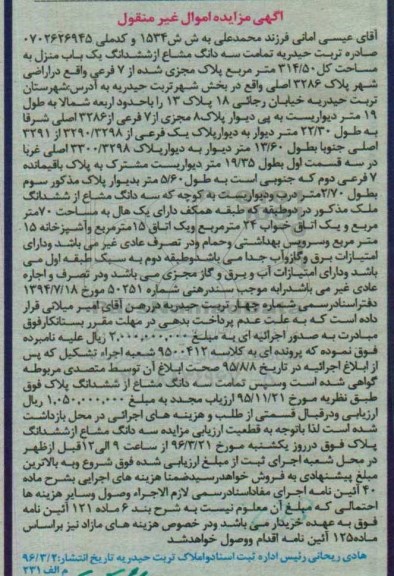 آگهی مزایده اموال غیر منقول
آقای عیسی امانی فرزند محمدعلی به ش ش۱۵۳۴ و کدملی ۰۷۰۲۶۲۶۹۴۵
صادره تربت حیدریه تمامت سه دانگ مشاع ازششدانگ یک باب منزل به
مساحت کل۳۱۴/۵۰ متر مربع پلاک مجزی شده از ۷ فرعی واقع دراراضی
شهر پلاک ۳۲۸۶ اصلی واقع در بخش شهرتربت حیدریه به آدرس:شهرستان
تربت حیدریه خیابان رجائی ۱۸ پلاک ۱۳ را باحدود اربعه شمالا به طول
۱۹ متر دیواریست به پی دیوار پلاک۸ مجزی از۷ فرعی از۳۲۸۶ اصلی شرقا
به طول ۲۲/۳۰ متر دیوار به دیوارپلاک یک فرعی از ۳۲۹۰/۳۲۹۸ از ۳۲۹۱
اصلی جنوبا بطول ۱۳/۶۰ متر دیوار به دیوارپلاک ۳۳۰۰/۳۲۹۸ اصلی غربا
در سه قسمت اول بطول ۱۹/۳۵ متر دیواریست مشترک به پلاک باقیمانده
۷ فرعی دوم که جنوبی است به طول ۵/۶۰ متر بدیوار پلاک مذکور سوم
بطول ۲/۷۰متر درب ودیواریست به کوچه که سه دانگ مشاع از ششدانگ
ملک مذکور در دوطبقه که طبقه همکف دارای یک هال به مساحت ۷۰متر
مربع و یک اتاق خواب ۲۴ مترمربع ویک اتاق ۱۵مترمربع وآشپزخانه ۱۵
متر مربع وسرویس بهداشتی وحمام ودر تصرف عادی غیر می باشد ودارای
امتیازات برق وگازوآب جدا می باشدوطبقه دوم به سبک طبقه اول می
باشد ودارای امتیازات آب و برق و گاز مجزی می باشد ودر تصرف و اجاره
عادی غیر می باشدرابه موجب سندرهنی شماره ۵۰۲۵۱ مورخ ۱۳۹۴/۷/۱۸
دفتراسنادرسمی شماره چهار تربت حیدریه دررهن آقای امیر میلانی قرار
داده است که به علت عدم پرداخت بدهی در مهلت مقرر بستانکارفوق
مبادرت به صدور اجرائیه ای به مبلغ ۲,۰۰۰,۰۰۰,۰۰۰ ریال علیه نامبرده
فوق نموده که پرونده ای به کلاسه ۹۵۰۰۴۱۲ شعبه اجراء تشکیل که پس
از ابلاغ اجرائیه در تاریخ ۹۵/۸/۸ صحت ابلاغ آن توسط متصدی مربوطه
گواهی شده است وسپس تمامت سه دانگ مشاع از ششدانگ پلاک فوق
طبق نظریه مورخ ۹۵/۱۱/۲۱ ارزیاب مجدد به مبلغ ۱,۰۵۰,۰۰۰,۰۰۰ ریال
ارزیابی ودرقبال قسمتی از طلب و هزینه های اجرائی در محل بازداشت
شده است لذا باتوجه به قطعیت ارزیابی مزایده سه دانگ مشاع ازششدانگ
پلاک فوق درروز یکشنبه مورخ ۹۶/۳/۲۱ از ساعت ۹ الی۱۲قبل ازظهر
در محل شعبه اجرای ثبت از مبلغ ارزیابی شده فوق شروع وبه بالاترین
مبلغ پیشنهادی به فروش خواهدرسیدضمنا هزینه های اجرایی بشرح ماده
۴۰ آئین نامه اجرای مفاداسنادرسمی لازم الاجراء وصول وسایر هزینه ها
احتمالی که مبلغ آن معلوم نیست به شرح بند ۶ ماده ۱۲۱ آئین نامه
فوق به عهده خریدار می باشد ودر خصوص هزینه های مازاد نیز براساس
ماده۱۲۵ آئین نامه اقدام ووصول خواهدشد
هادی ریحانی رئیس اداره ثبت اسنادواملاک تربت حیدریه تاریخ انتشار:۹۶/۳/۲
م الف ۲۳۱